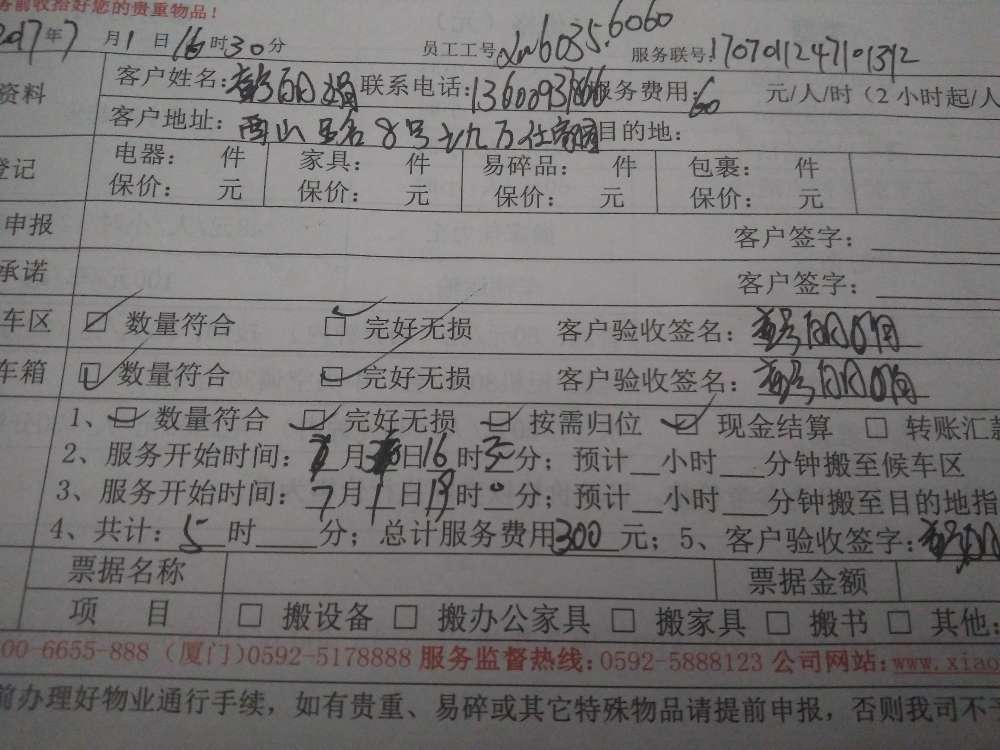 务前收拾好您的贵重物品!
2017年7月1日16时30分 员工工号 6035.6060 服务联号:1707011247101392
资料 客户姓名: 联系电话: 服务费用:60 元/人/时（2小时起/人
客户地址: 8号 目的地:
登记 电器: 件 家具: 件 易碎品: 件 包裹: 件
保价: 元 保价: 元 保价: 元 保价: 元
申报 客户签字:
承诺 客户签字:
车区 ☑ 数量符合 ☑ 完好无损 客户验收签名:
车箱 ☑ 数量符合 ☑ 完好无损 客户验收签名:
1、☑ 数量符合 ☑ 完好无损 ☑ 按需归位 ☑ 现金结算 □ 转账汇款
2、服务开始时间: 月 日16时 分; 预计__小时___分钟搬至候车区
3、服务开始时间:7月1日 时0分; 预计__小时___分钟搬至目的地指
4、共计:5时____分; 总计服务费用300元; 5、客户验收签字:
票据名称 票据金额
项 目 □ 搬设备 □ 搬办公家具 □ 搬家具 □ 搬书 □ 其他:
00-6655-888（厦门)0592-5178888 服务监督热线:0592-5888123 公司网站:www.xiao
前办理好物业通行手续，如有贵重、易碎或其它特殊物品请提前申报，否则我司不予